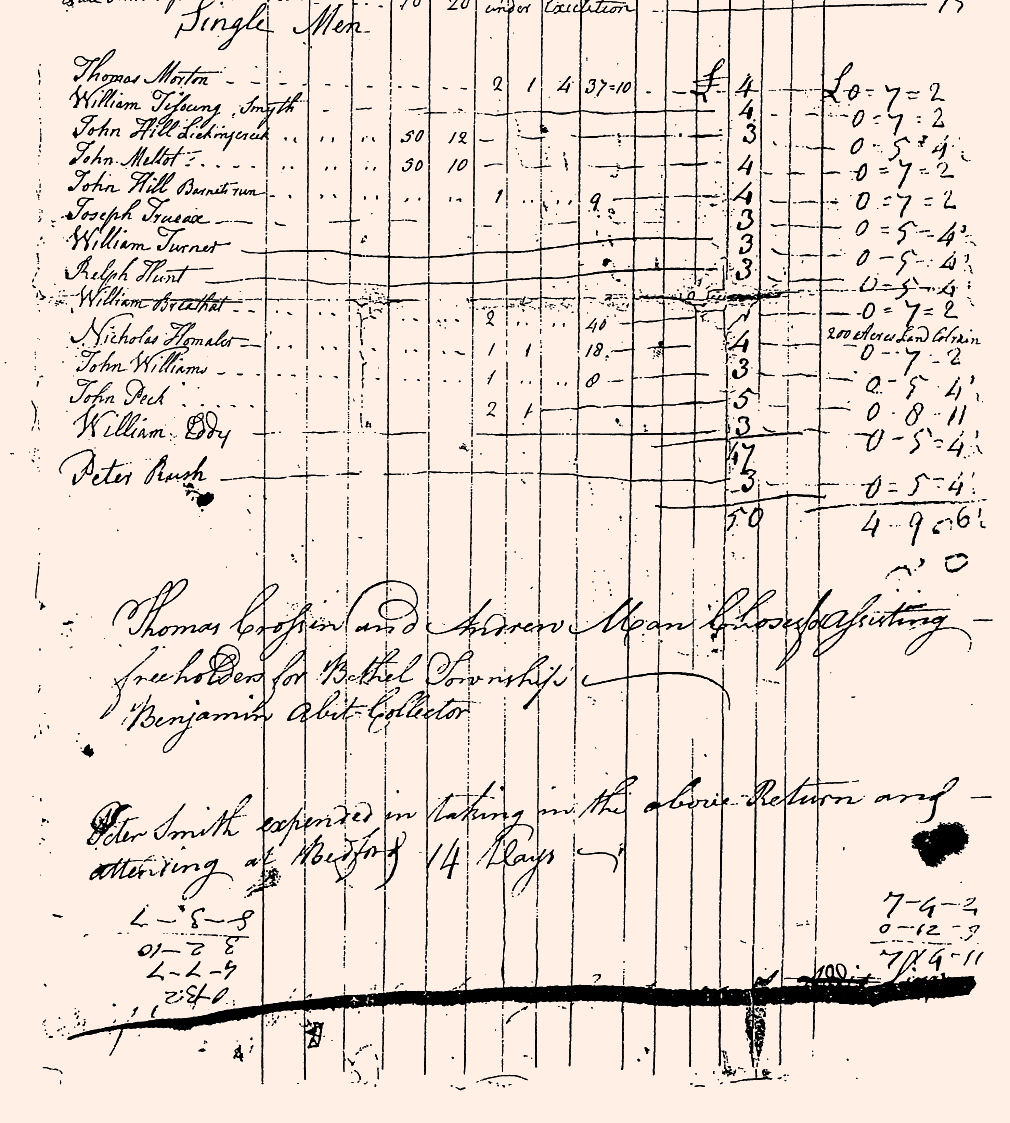 10 20 under Execution 15
Single Men
Thomas Morton 2 1 4 37=10 £ 4 £0=7=2
William Tifoung Smyth 4 0=7=2
John Hill Lickingcreek 50 12 3 0-5-4
John Mellot 50 10 4 0=7=2
John Hill Barnets run 1 9 4 0=7=2
Joseph Trueax 3 0-5-4
William Turner 3 0-5-4
Relph Hunt 3 0-5-4
William Breathat 2 40 0=7=2
200 Acres Land Colrain
Nicholas Homaler 1 1 18 4 0-7-2
John Williams 1 8 3 0-5-4
John Peck 2 1 5 0-8-11
William Eddy 3 0-5-4
47
Peter Rush 3 0=5-4
50 4-9-6
Thomas Crossin and Andrew Man Chose Assisting
freeholders for Bethel Township
Benjamin Abit Collector
Peter Smith expended in taking in the above Return and
attending at Bedford 14 Days
7-9-2
0-12-9
8-3-7
3 2-10
4-7-7